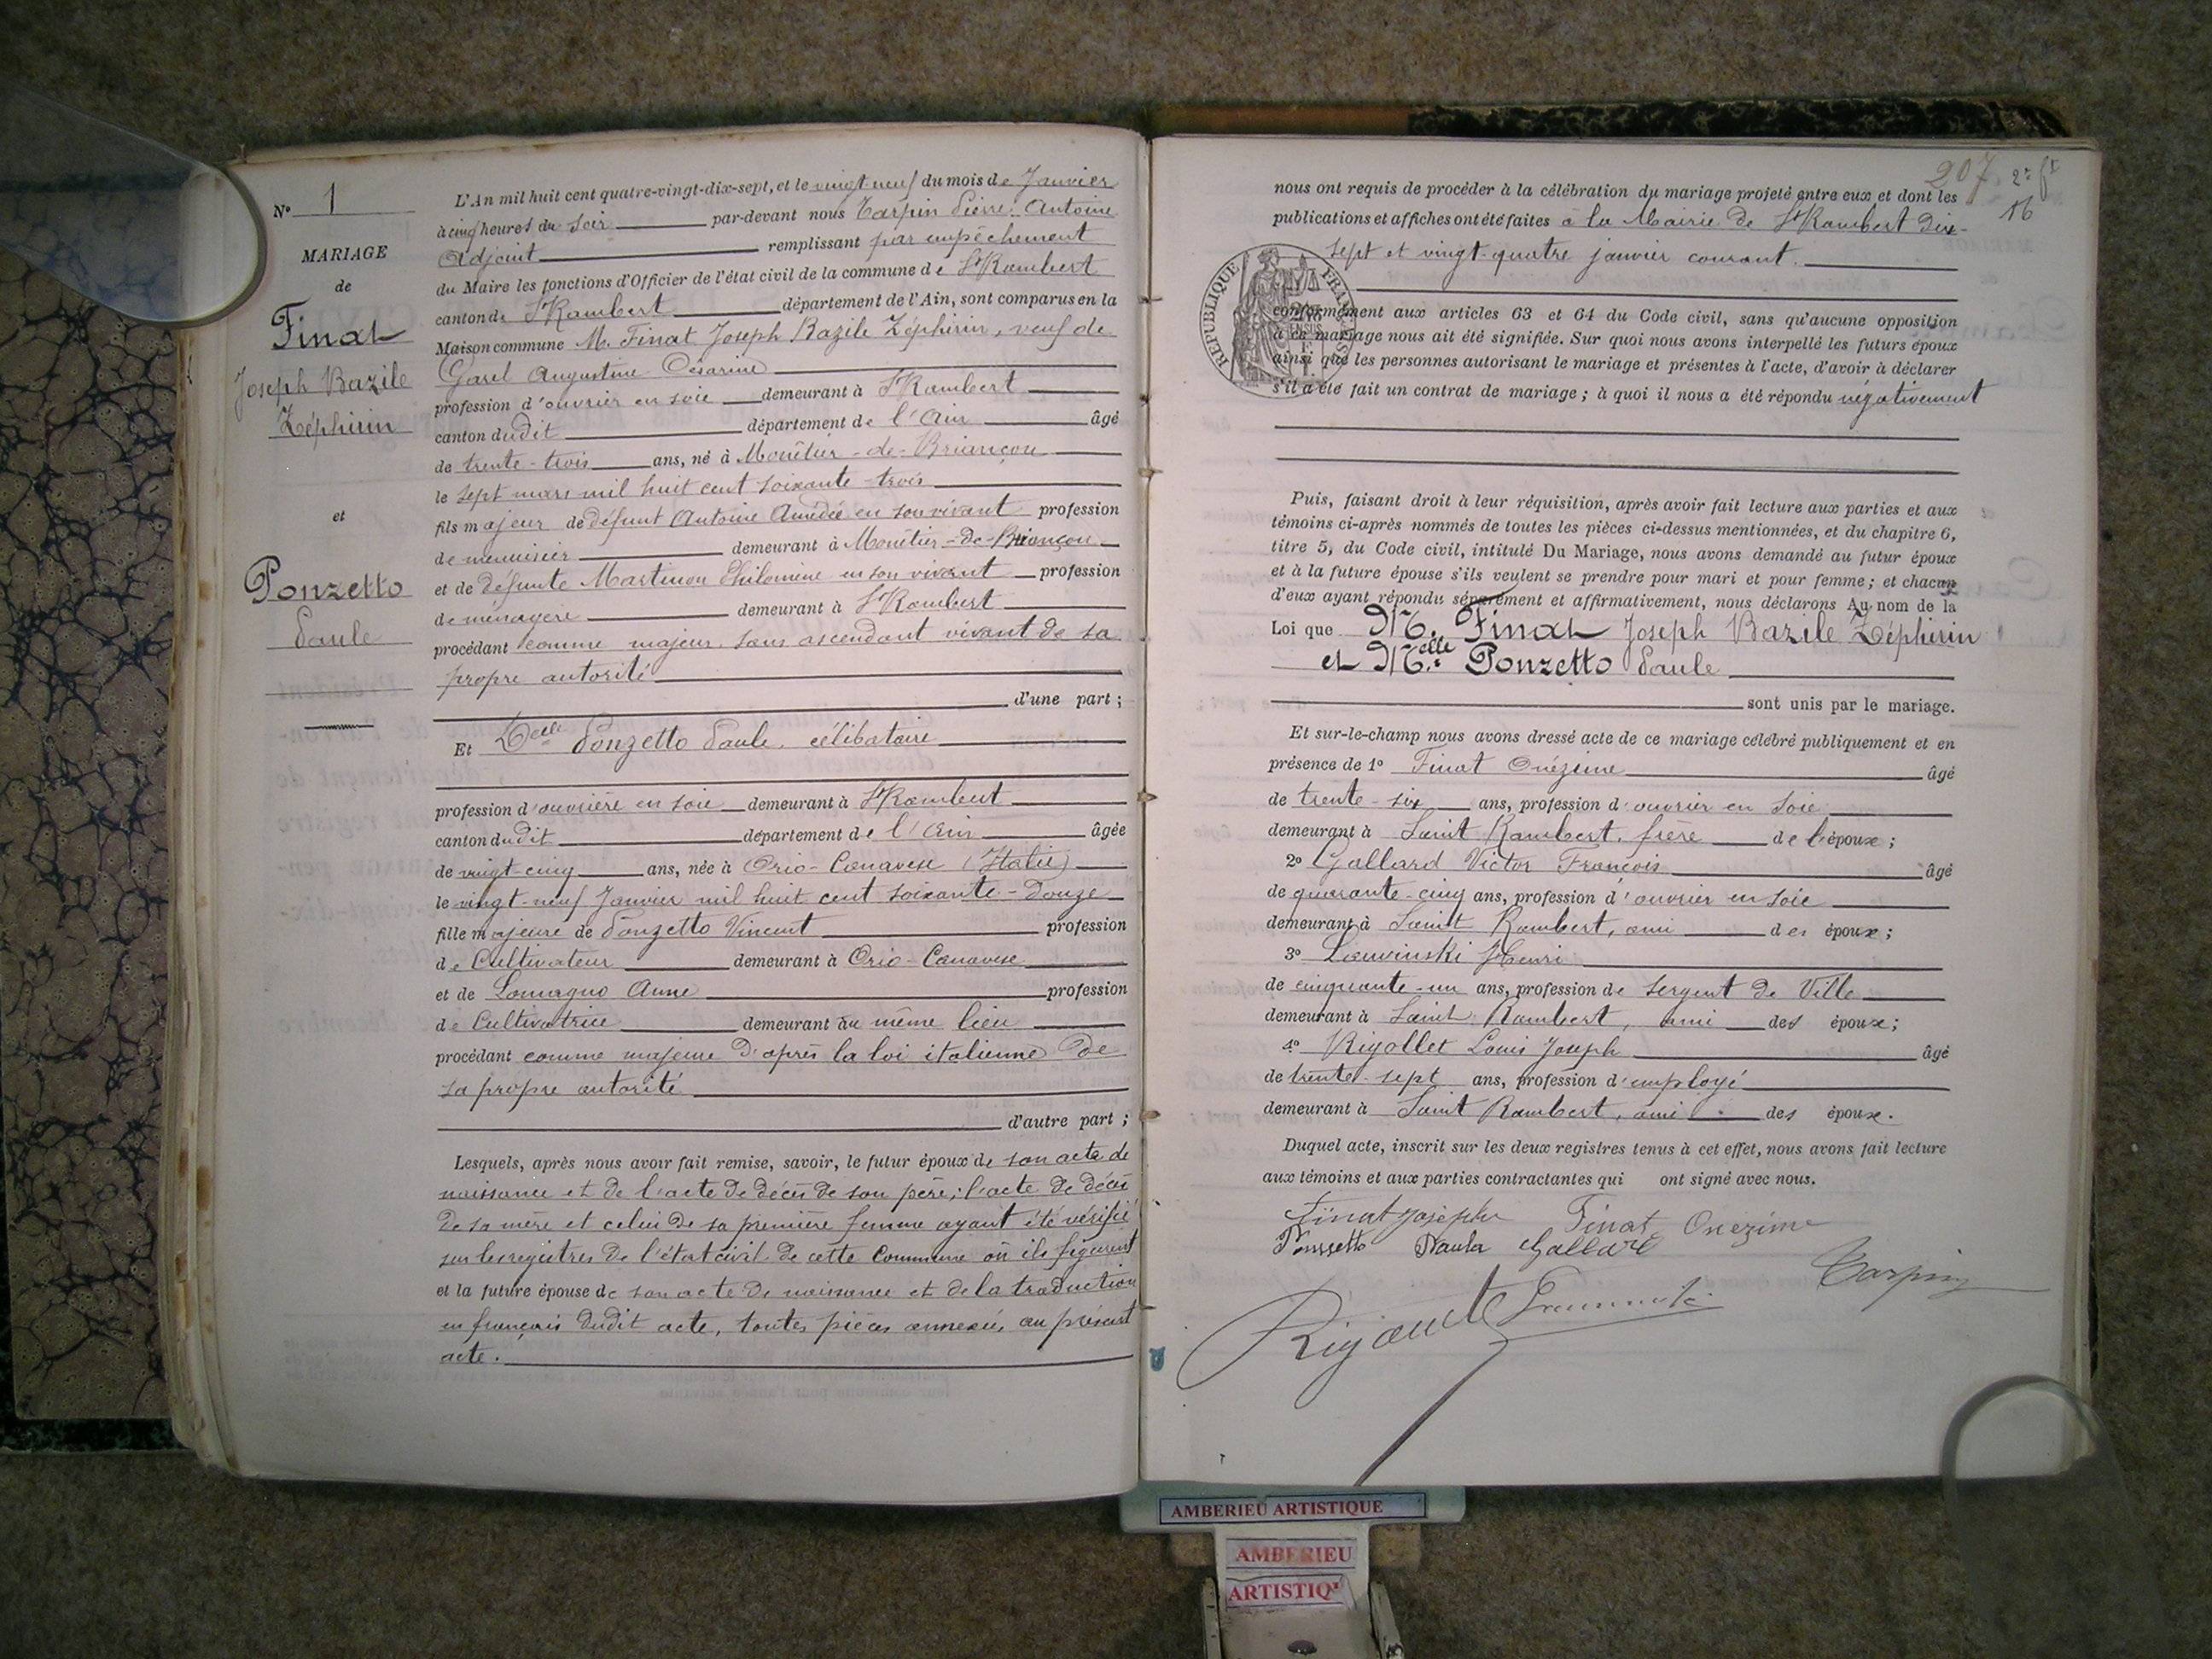 N° 1
MARIAGE
de
Finat
Joseph Bazile
Zéphirin
et
Ponzetto
Paule
L'An mil huit cent quatre-vingt-dix-sept, et le vingt neuf du mois de Janvier
à cinq heures du soir par-devant nous Tarpin Pierre Antoine
Adjoint remplissant par empêchement
du Maire les fonctions d'Officier de l'état civil de la commune de St Rambert
canton de St Rambert département de l'Ain, sont comparus en la
Maison commune M. Finat Joseph Bazile Zéphirin, veuf de
Garel Augustine Césarine
profession d'ouvrier en soie demeurant à St Rambert
canton dudit département de l'Ain âgé
de trente-trois ans, né à Monêtier-de-Briançon
le sept mars mil huit cent soixante-trois
fils majeur de défunt Antoine Amédée en son vivant profession
de menuisier demeurant à Monêtier-de-Briançon
et de défunte Martinon Philomène en son vivant profession
de ménagère demeurant à St Rambert
procédant comme majeur sans ascendant vivant de sa
propre autorité
d'une part ;
Et Delle Ponzetto Paule, célibataire
profession d'ouvrière en soie demeurant à St Rambert
canton dudit département de l'Ain âgée
de vingt-cinq ans, née à Orio-Canavese (Italie)
le vingt-neuf Janvier mil huit cent soixante-douze
fille majeure de Ponzetto Vincent profession
de Cultivateur demeurant à Orio-Canavese
et de Lomagno Anne profession
de Cultivatrice demeurant au même lieu
procédant comme majeure d'après la loi italienne de
sa propre autorité
d'autre part ;
Lesquels, après nous avoir fait remise, savoir, le futur époux de son acte de
naissance et de l'acte de décès de son père ; l'acte de décès
de sa mère et celui de sa première femme ayant été vérifié
sur les registres de l'état civil de cette Commune où ils figurent
et la future épouse de son acte de naissance et de la traduction
en français dudit acte, toutes pièces annexées au présent
acte.
207 2e ft
16
nous ont requis de procéder à la célébration du mariage projeté entre eux et dont les
publications et affiches ont été faites à la Mairie de St Rambert dix-
sept et vingt-quatre janvier courant.
RÉPUBLIQUE FRANÇAISE
conformément aux articles 63 et 64 du Code civil, sans qu'aucune opposition
à ce mariage nous ait été signifiée. Sur quoi nous avons interpellé les futurs époux
ainsi que les personnes autorisant le mariage et présentes à l'acte, d'avoir à déclarer
s'il a été fait un contrat de mariage ; à quoi il nous a été répondu négativement
Puis, faisant droit à leur réquisition, après avoir fait lecture aux parties et aux
témoins ci-après nommés de toutes les pièces ci-dessus mentionnées, et du chapitre 6,
titre 5, du Code civil, intitulé Du Mariage, nous avons demandé au futur époux
et à la future épouse s'ils veulent se prendre pour mari et pour femme ; et chacun
d'eux ayant répondu séparément et affirmativement, nous déclarons Au nom de la
Loi que M. Finat Joseph Bazile Zéphirin
et Melle Ponzetto Paule
sont unis par le mariage.
Et sur-le-champ nous avons dressé acte de ce mariage célébré publiquement et en
présence de 1° Finat Onézime âgé
de trente-six ans, profession d'ouvrier en soie
demeurant à Saint Rambert, frère de l'époux ;
2° Gallard Victor François âgé
de quarante-cinq ans, profession d'ouvrier en soie
demeurant à Saint Rambert, ami des époux ;
3° Henri
de cinquante-un ans, profession de sergent de Ville
demeurant à Saint Rambert, ami des époux ;
4° Rigollet Louis Joseph âgé
de trente-sept ans, profession d'employé
demeurant à Saint Rambert, ami des époux.
Duquel acte, inscrit sur les deux registres tenus à cet effet, nous avons fait lecture
aux témoins et aux parties contractantes qui ont signé avec nous.
Finat Josephe Finat Onezime
Ponssetto Paula Gallard
Tarpin
AMBERIEU ARTISTIQUE
AMBERIEU
ARTISTIQ